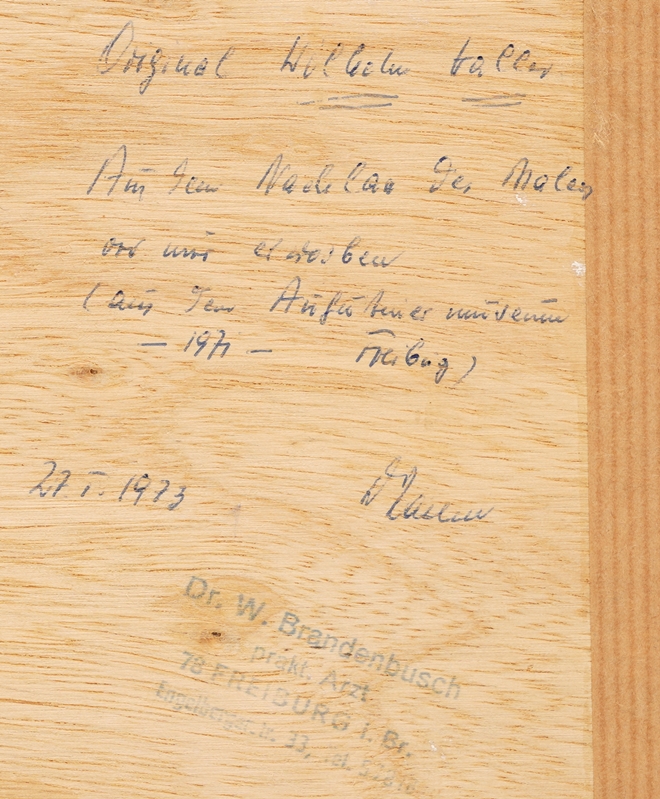 Original Wilhelm Haller
Aus dem Nachlass des Malers
von mir erworben
(aus dem Augustinermuseum
– 1971 – Freiburg)
27 I. 1973
Dr. W. Brandenbusch
prakt. Arzt
78 FREIBURG i. Br.
Engelbergerstr. 33, Tel.